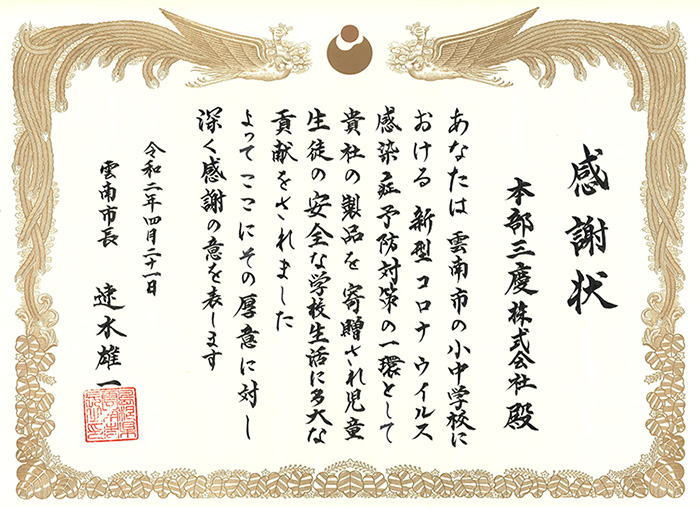 感謝状
本部三慶株式会社 殿
あなたは 雲南市の小中学校に
おける 新型コロナウイルス
感染症予防対策の一環として
貴社の製品を 寄贈され児童
生徒の 安全な学校生活に多大な
貢献をされました
よって ここにその厚意に対し
深く感謝の意を表します
令和二年四月二十一日
雲南市長 速水雄一